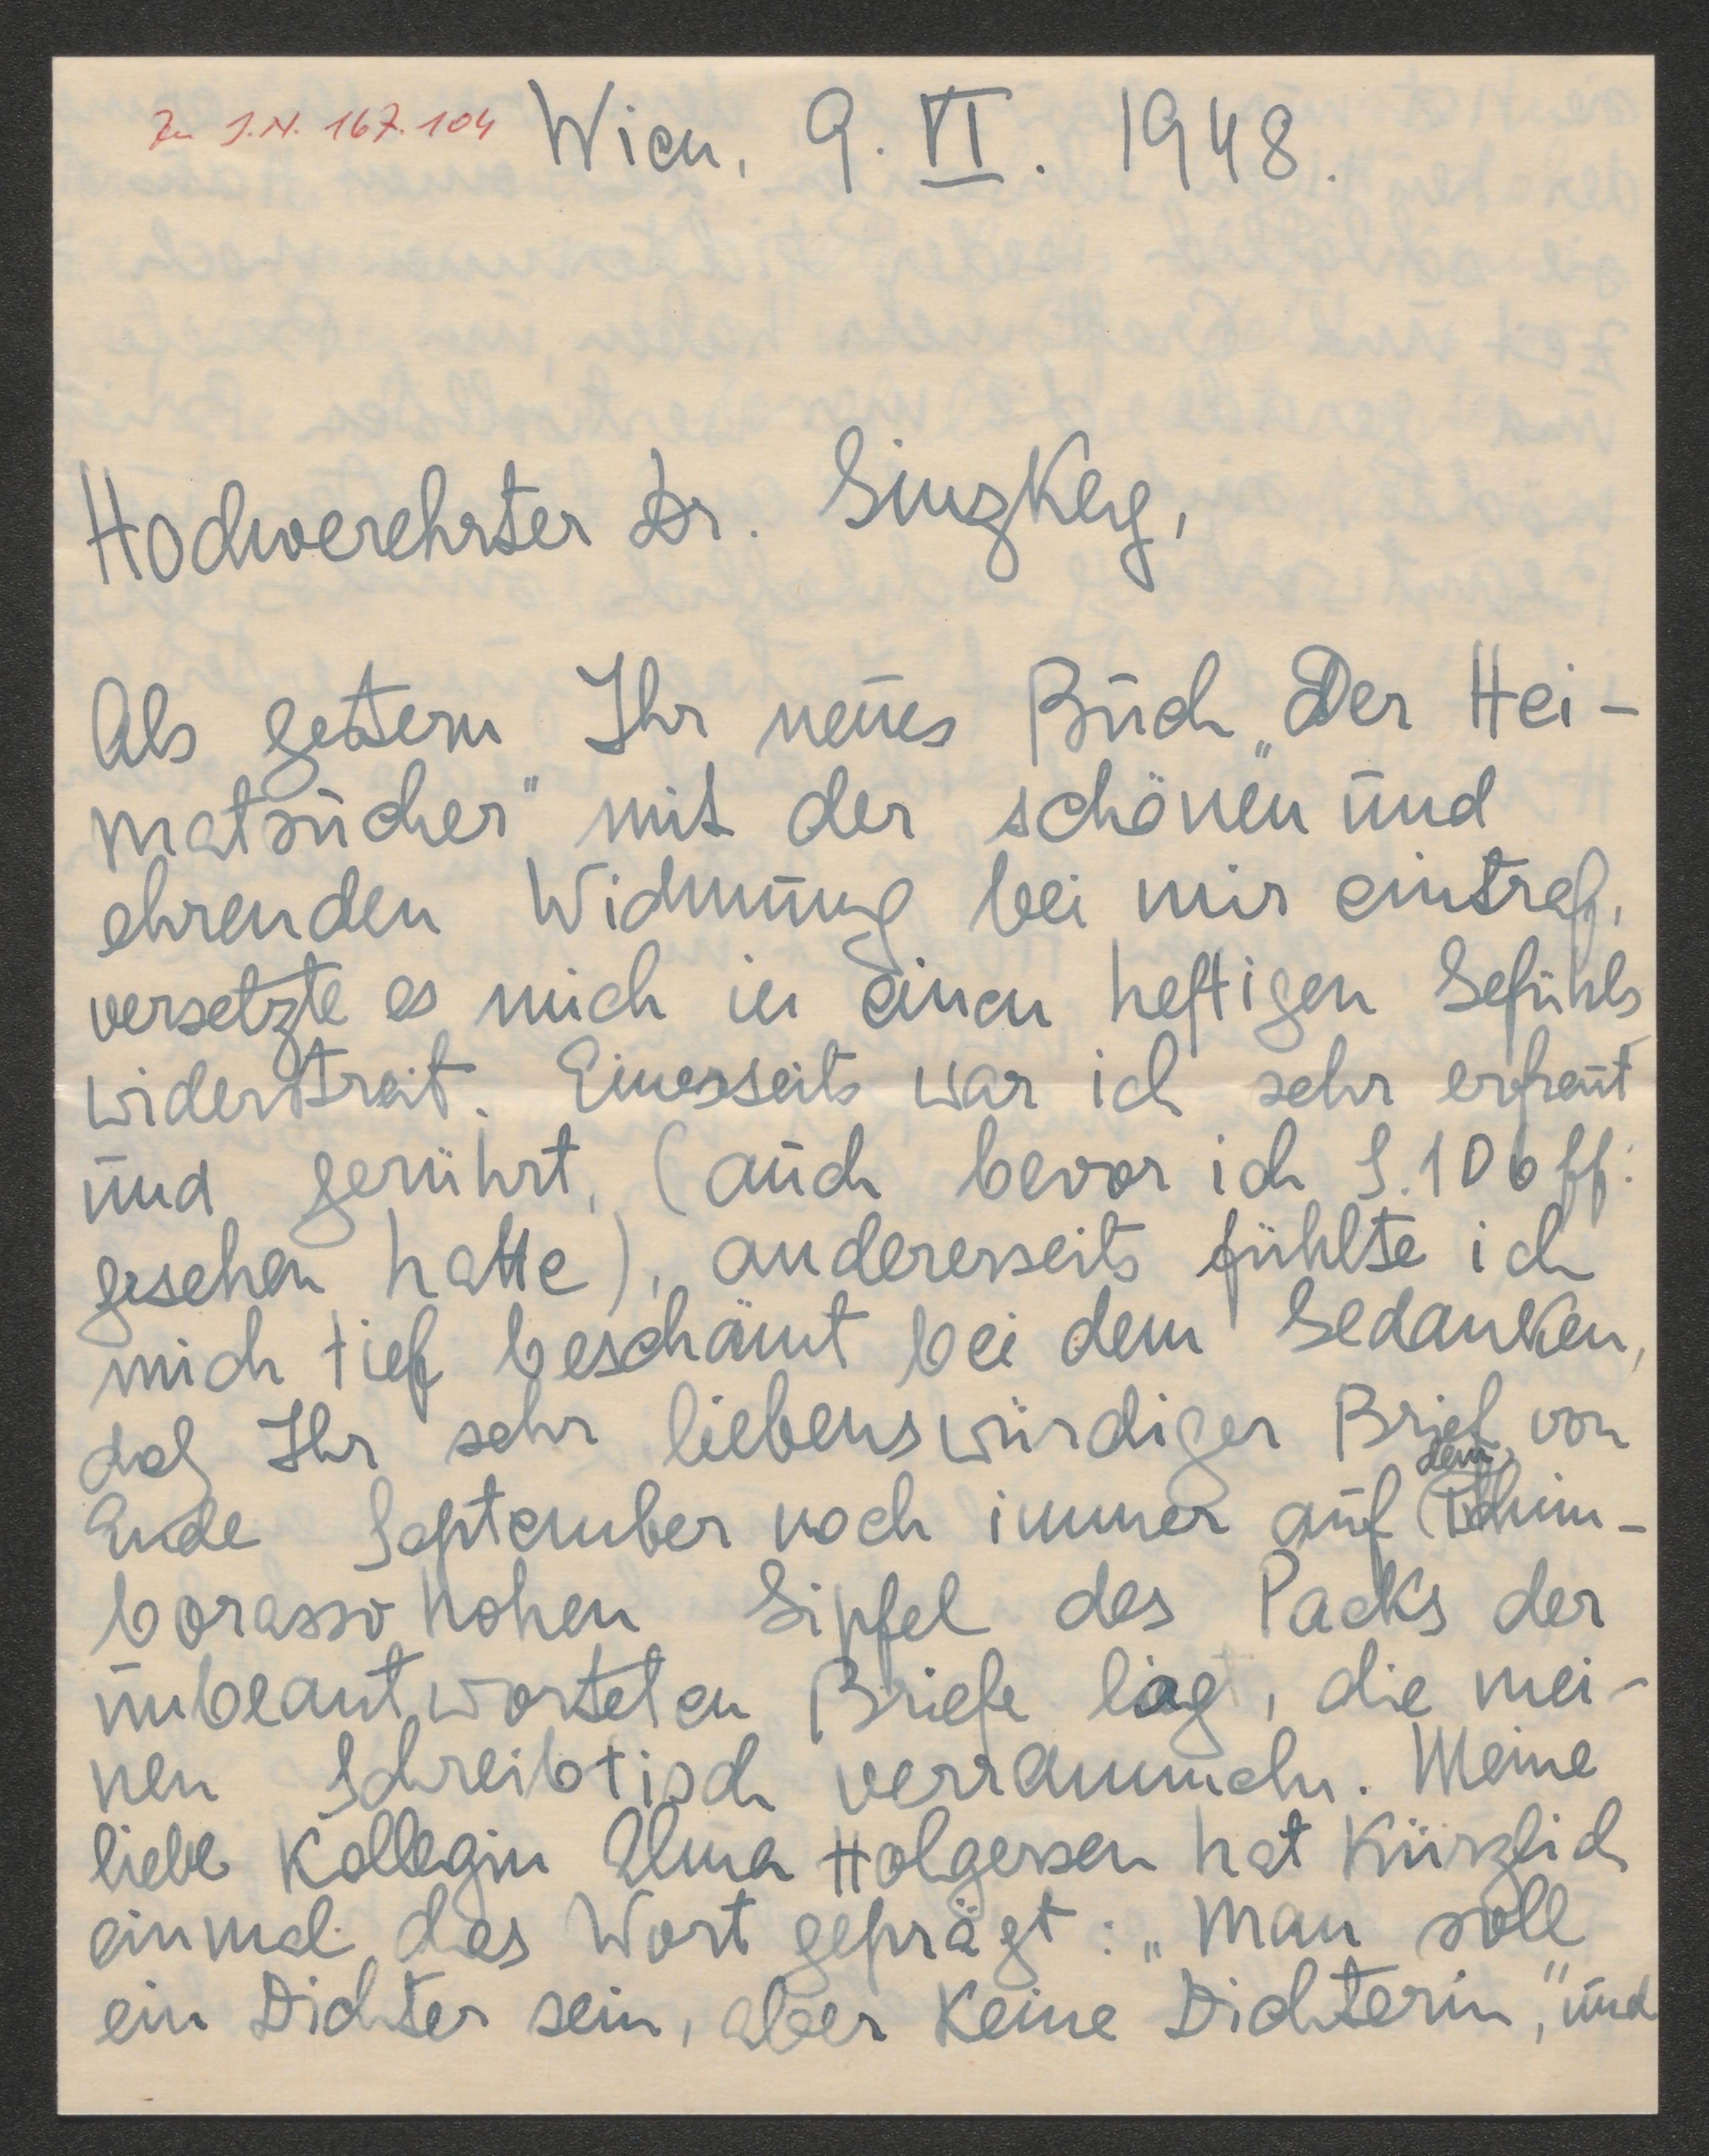 Zu I.N. 167.104
Wien, 9. VI. 1948.
Hochverehrter Dr. Ginzkey,
Als gestern Ihr neues Buch „Der Hei-
matsucher" mit der schönen und
ehrenden Widmung bei mir eintraf,
versetzte es mich in einen heftigen Gefühls
widerstreit. Einerseits war ich sehr erfreut
und gerührt, (auch bevor ich S. 106 ff:
gesehen hatte), andererseits fühlte ich
mich tief beschämt bei dem Gedanken,
daß Ihr sehr liebenswürdiger Brief von
Ende September noch immer auf dem Tschim-
borasso hohen Gipfel des Packs der
unbeantworteten Briefe liegt, die mei-
nen Schreibtisch verrammeln. Meine
liebe Kollegin Alma Holgersen hat kürzlich
einmal das Wort geprägt: „Man soll
ein Dichter sein, aber keine Dichterin," und